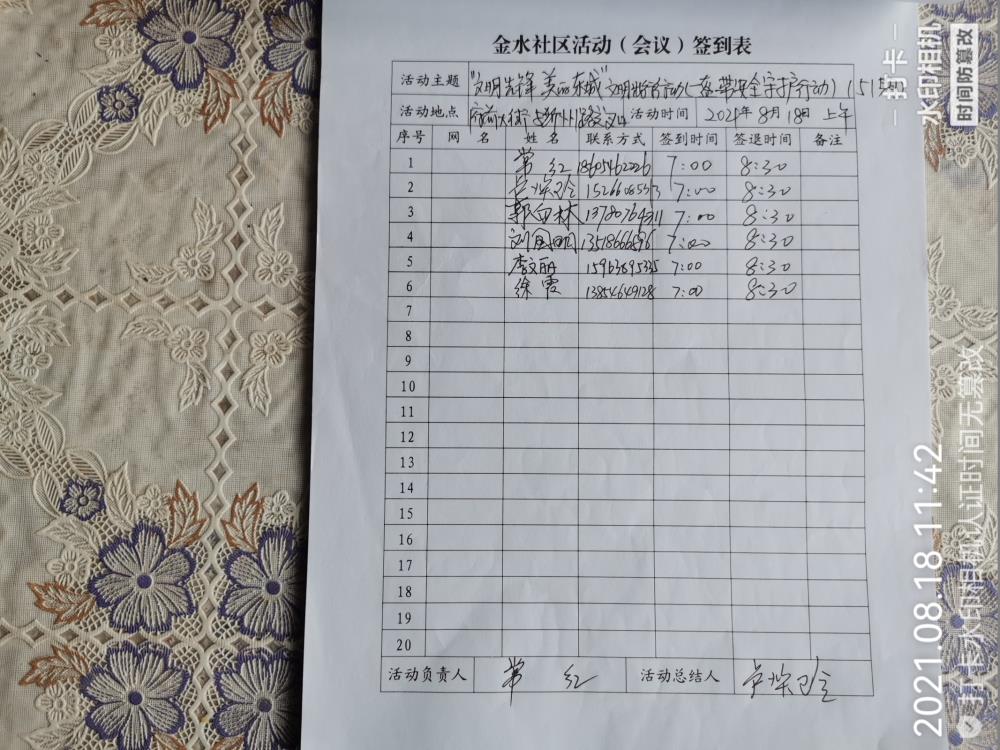 金水社区活动（会议）签到表
活动主题 "文明先锋 美丽东城" 文明 行动(一盔一带安全守护行动)
活动地点 府前大街 路口 活动时间 2021年8月18日 上午
序号 网名 姓名 联系方式 签到时间 签退时间 备注
1 常红 18605462226 7:00 8:30
2 7:00 8:30
3 郭白林 7:00 8:30
4 7:00 8:30
5 李文丽 7:00 8:30
6 徐霞 13854649128 7:00 8:30
7
8
9
10
11
12
13
14
15
16
17
18
19
20
活动负责人 常红 活动总结人
打卡
水印相机
时间防篡改
2021.08.18 11:42
打卡水印相机认证时间无篡改